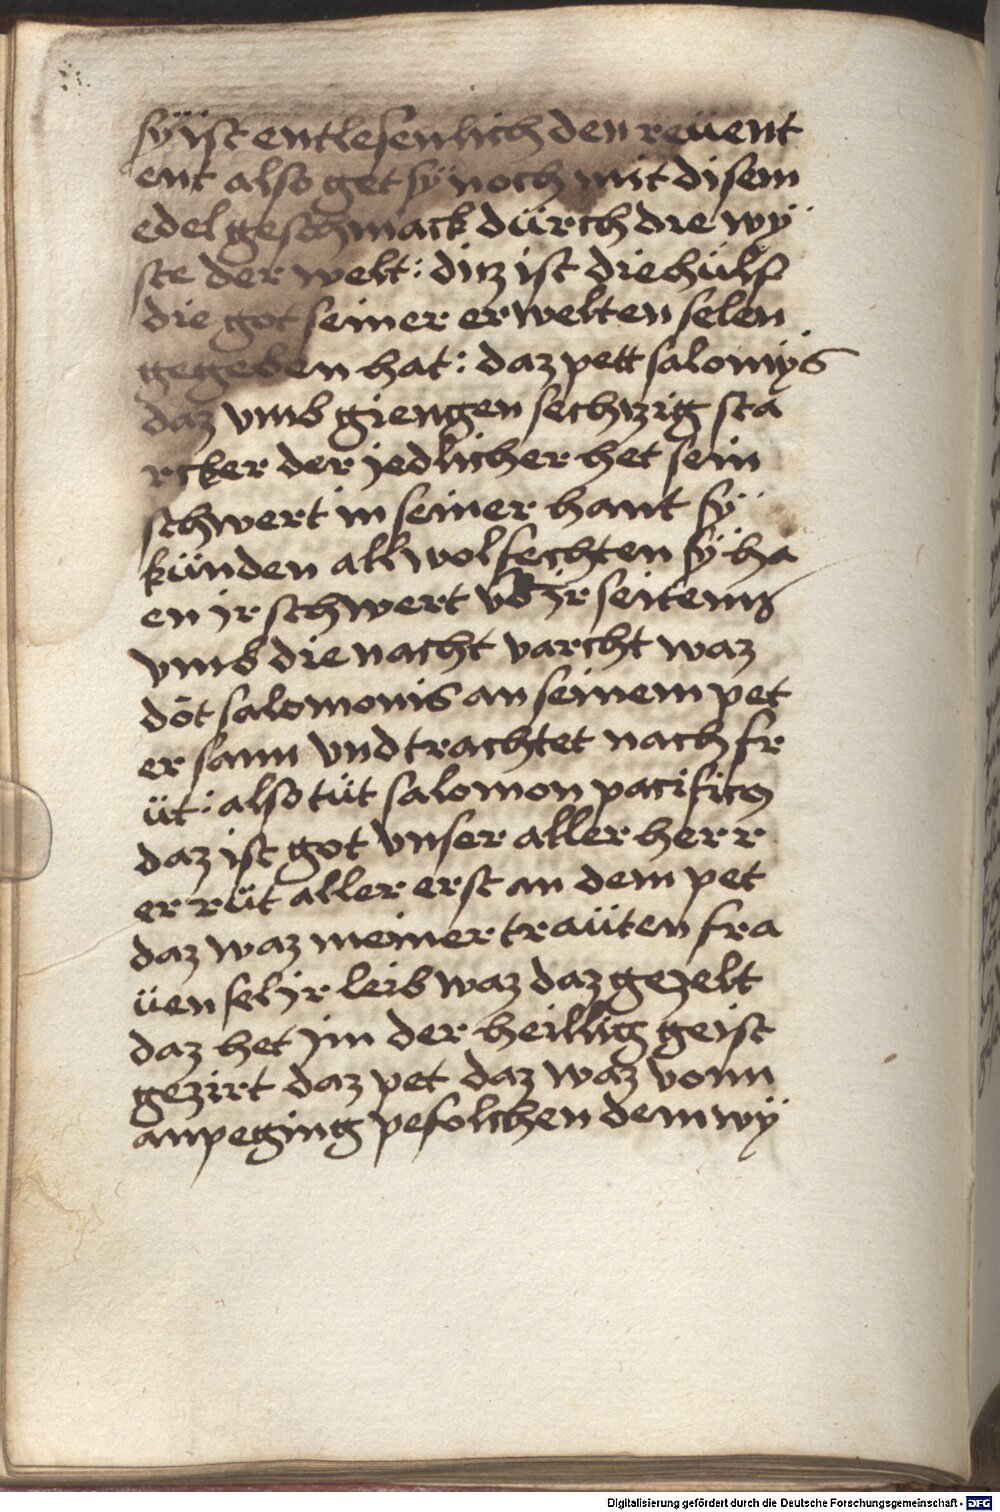 sÿ ist entlesenlich den reüent
ent also get sÿ noch mit disem
edel geschmack dürch die wÿ
ste der welt : ditz ist die hülf
die got seiner erwelten selen
gegeben hat : daz pett salomÿs
daz vmb giengen sechtzig sta
rcker der jedlicher het sein
schwert in seiner hant sÿ
künden all wol fechten sÿ ha
en jr schwert vb jr seitenn
vmb die nacht varcht waz
döt salomonis an seinem pet
er sann vnd trachtet nach fr
üt : also tüt salomon pacificus
daz ist got vnser aller herr
er rüt aller erst an dem pet
daz waz meiner traüten fra
üen sel jr leib waz daz gezelt
daz het jm der heillig geist
gezirt daz pet daz waz vonn
anpeging pefolchen dem wÿ
Digitalisierung gefördert durch die Deutsche Forschungsgemeinschaft - DFG